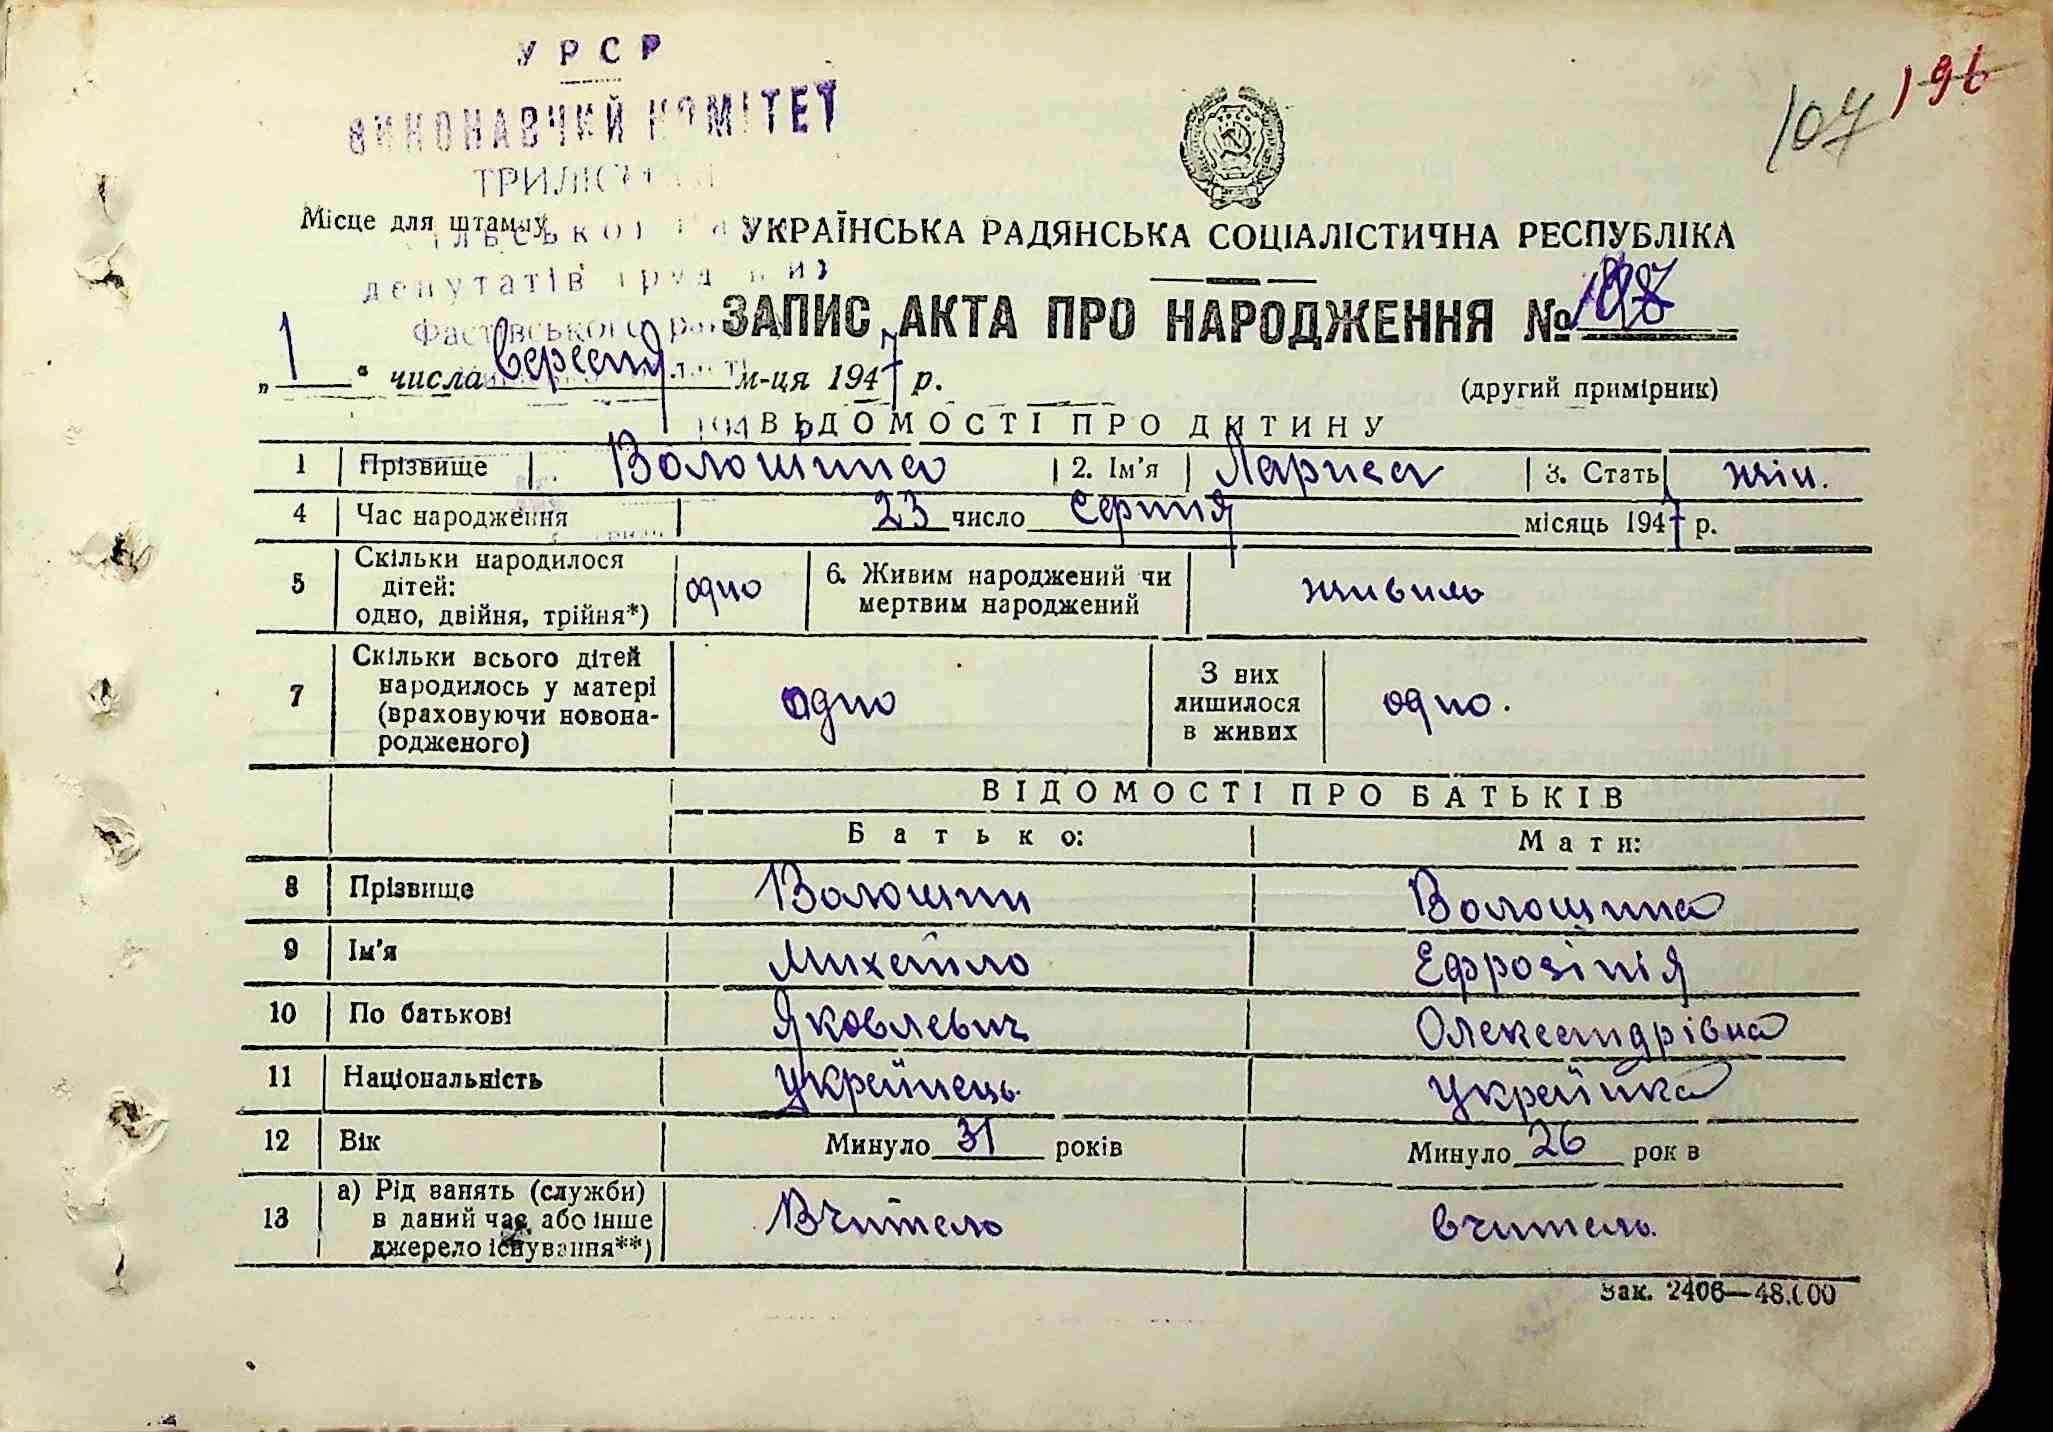 УРСР
ВИКОНАВЧИЙ КОМІТЕТ
107 196
Місце для штампу
УКРАЇНСЬКА РАДЯНСЬКА СОЦІАЛІСТИЧНА РЕСПУБЛІКА
депутатів
ЗАПИС АКТА ПРО НАРОДЖЕННЯ №
Фастівського
„ 1 “ числа вересня м-ця 1947 р.
(другий примірник)
ВІДОМОСТІ ПРО ДИТИНУ
1 Прізвище Волошина 2. Ім'я Лариса 3. Стать жін.
4 Час народження 23 число серпня місяць 1947 р.
5 Скільки народилося дітей: одно, двійня, трійня*) одно 6. Живим народжений чи мертвим народжений живиль
7 Скільки всього дітей народилось у матері (враховуючи новонародженого) одно З них лишилося в живих одно.
ВІДОМОСТІ ПРО БАТЬКІВ
Батько: Мати:
8 Прізвище Волошин Волошина
9 Ім'я Михайло Ефрозінія
10 По батькові Яковлевич Олександрівна
11 Національність українець українка
12 Вік Минуло 31 років Минуло 26 рок в
13 а) Рід занять (служби) в даний час або інше джерело існування**) Вчитель вчитель.
Зак. 2406—48.000